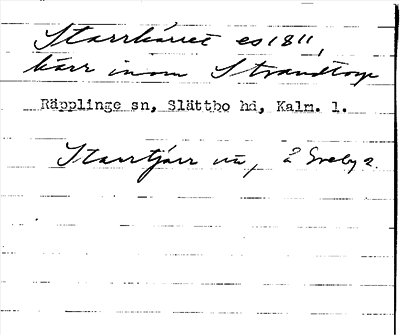 Starrkärret es 1811,
kärr inom Strandtorp
Räpplinge sn, Slättbo hd, Kalm. l.
Starrtjärr